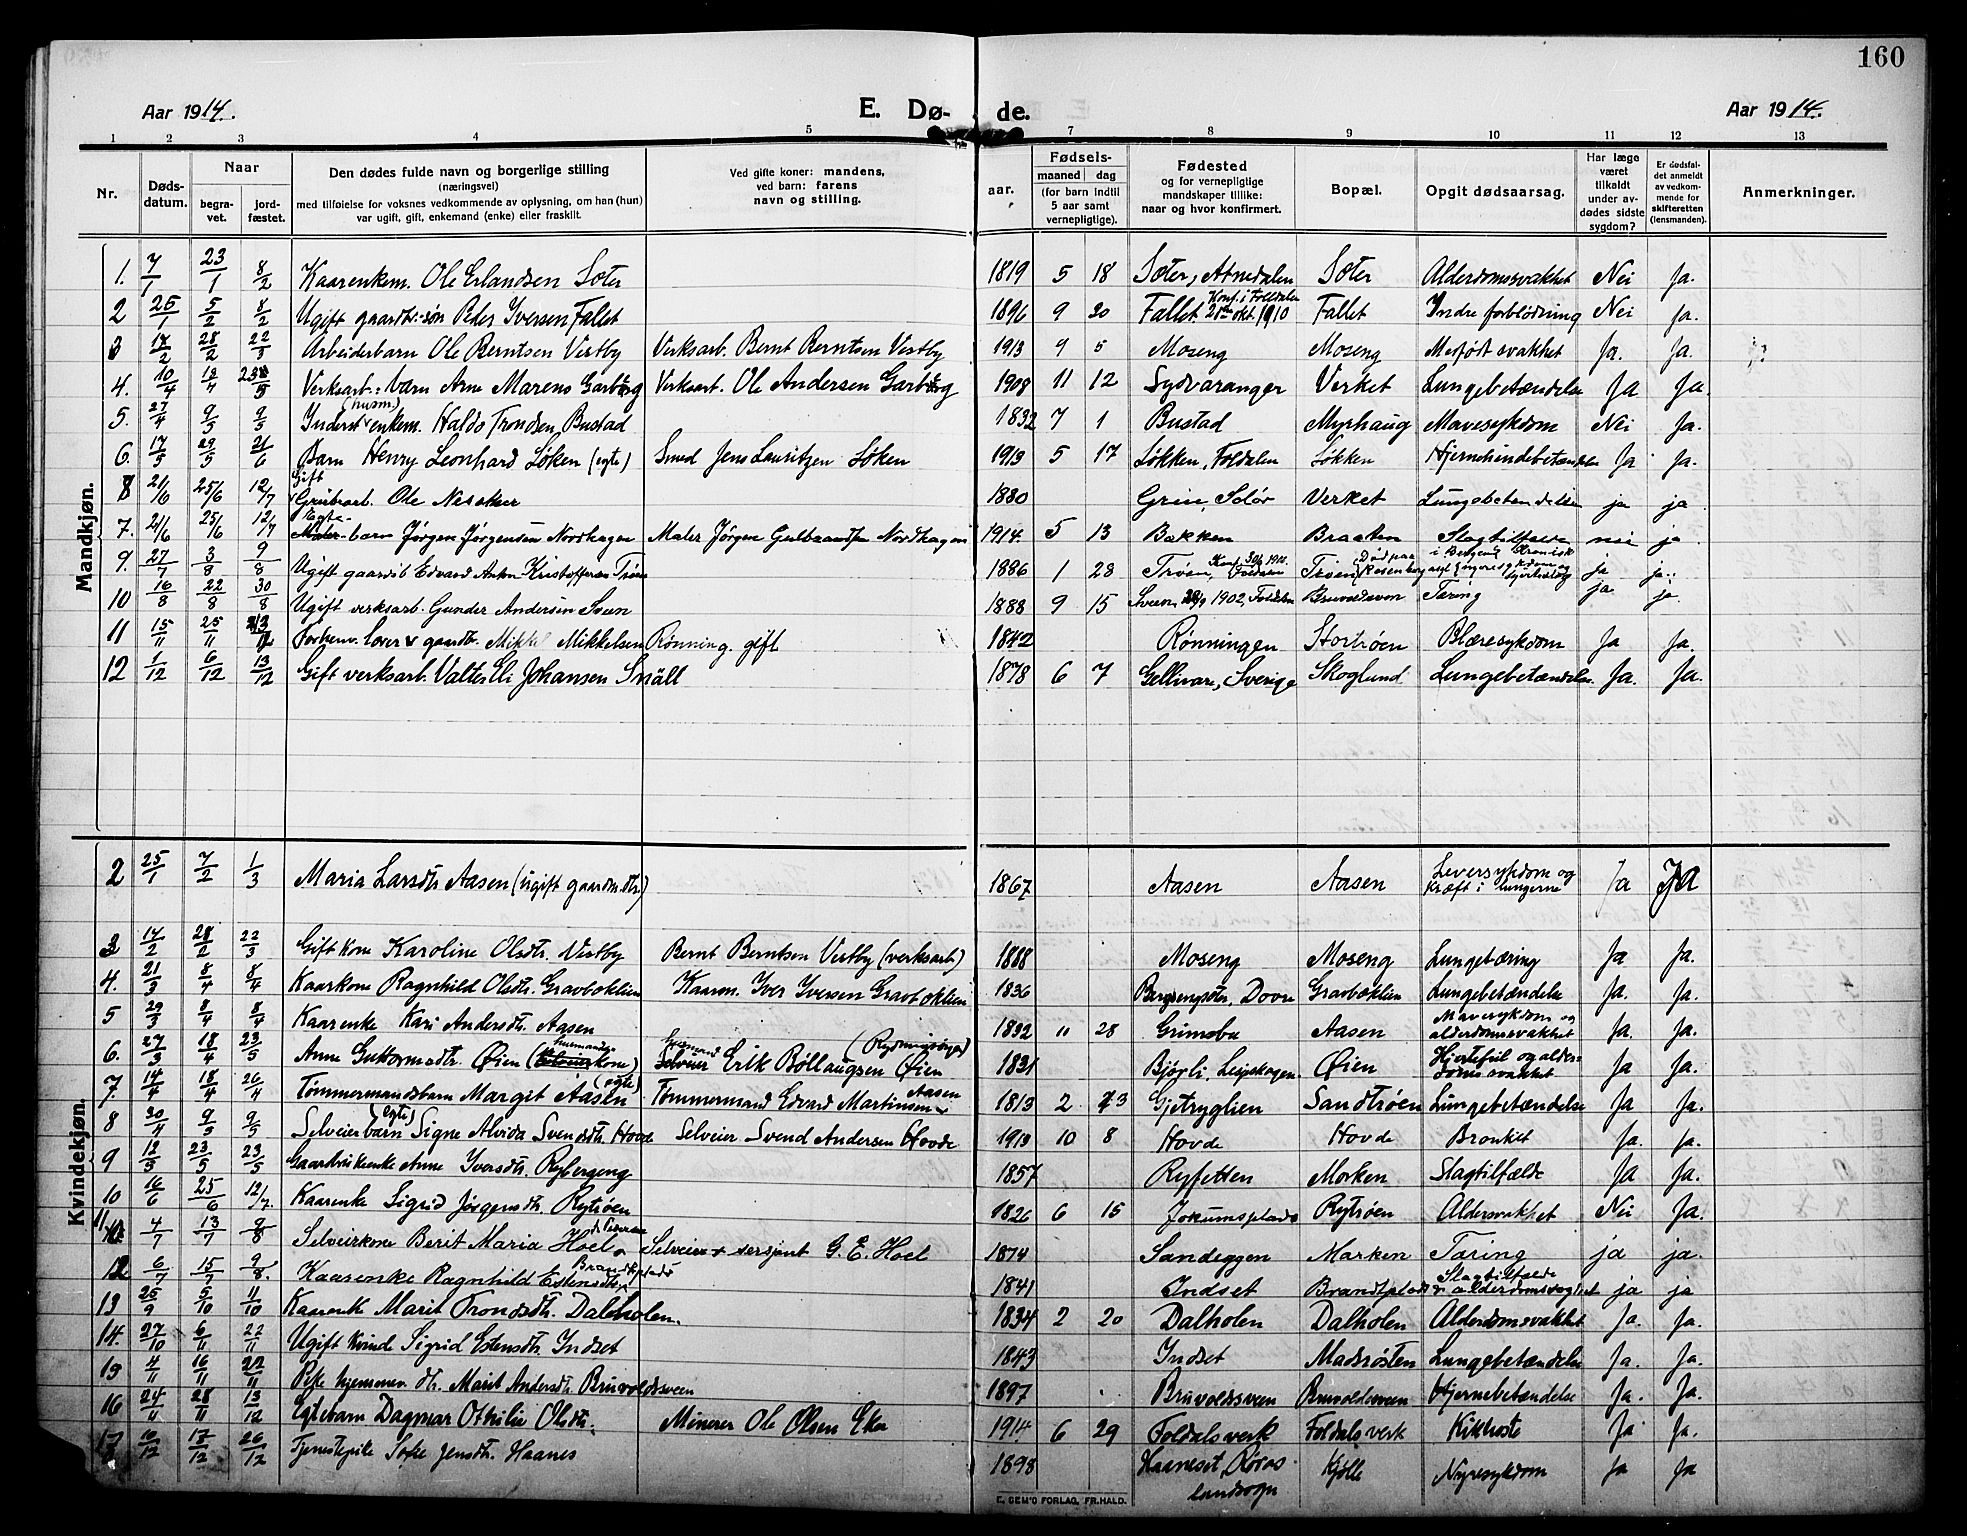 160
Aar 1914. E. Dø- de. Aar 1914.
1 2 3 4 5 7 8 9 10 11 12 13
Nr. Døds-datum. Naar begra-vet. jord-fæstet. Den dødes fulde navn og borgerlige stilling (næringsvei) med tilføielse for voksnes vedkommende av oplysning, om han (hun) var ugift, gift, enkemand (enke) eller fraskilt. Ved gifte koner: mandens, ved barn: farens navn og stilling. aar. Fødsels- maaned dag (for barn indtil 5 aar samt vernepligtige). Fødested og for vernepligtige mandskaper tillike: naar og hvor konfirmert. Bopæl. Opgit dødsaarsag. Har læge været tilkaldt under av-dødes sidste sygdom? Er dødsfal-det anmeldt av vedkom-mende for skifteretten (lensmanden). Anmerkninger.
Mandkjøn.
1. 7/1 23/1 8/2 Kaarenkem. Ole Erlandsen Sæter 1819 5 18 Sæter, Atnedalen Sæter Alderdomssvakhet Nei Ja.
2 25/1 5/2 8/2 Ugift gaardb:søn Peder Iversen Fallet 1896 9 20 Fallet. Konf. i Foldalen 2den okt. 1910 Fallet Indre forblødning Nei Ja.
3 14/2 28/2 22/3 Arbeiderbarn Ole Berntsen Vestby Verksarb. Bernt Berntsen Vestby 1913 9 5 Moseng Moseng Medfødt svakhet Ja. Ja.
4. 10/4 18/4 23/5 Verksarb: barn Arne Marens Garberg Verksarb. Ole Andersen Garberg 1908 11 12 Sydvaranger Verket Lungebetændelse Ja Ja.
5. 27/4 9/5 9/5 Inderst (husm) enkem. Haldo Trondsen Bustad 1832 7 1 Bustad Myrhaug Mavesykdom Nei Ja.
6. 17/5 29/5 21/6 Barn Henry Leonhard Løken (egte) Smed Jens Lauritzen Løken 1913 5 17 Løkken, Foldalen Løkken Hjernehindebetændelse Ja Ja.
8 21/6 25/6 12/7 Gift Grubearb. Ole Næsaker 1880 Grue, Solør Verket Lungebetændelse ja ja
7. 21/6 25/6 12/7 Egte- Maler-barn Jørgen Jørgensen Nordhagen Maler Jørgen Gulbrandsen Nordhagen 1914. 5 13 Bakken Braaten Slagtilfælde nei ja
9. 27/7 3/8 9/8 Ugift gaardb Edvard Anton Kristoffersen Trøen 1886 1 28 Trøen, Foldalen Trøen ja ja.
10 16/8 22/8 30/8 Ugift verksarb. Gunder Andersen Sveen 1888 9 15 Sveen, 28/9 1902, Foldalen Bruvoldsveen Tæring ja ja
11 15/11 25/11 Forhenv. lærer & gaardbr. Mikkel Mikkelsen Rønning. gift 1842 Rønningen Stortrøen Blæresykdom Ja Ja.
12 1/12 6/12 13/12 Gift verksarb. Valter Eli Johansen Snäll 1878 6 7 Gellivare, Sverige Skoglund Lungebetændelse. Ja. Ja.
Kvindekjøn.
2 25/1 7/2 1/3 Maria Larsdtr Aasen (ugift gaardm.dtr) 1867 Aasen Aasen Leversykdom og kræft i lungerne Ja Ja
3 14/2 28/2 22/3 Gift kone Karoline Olsdtr. Vestby Bernt Berntsen Vestby (verksarb) 1888 Moseng Moseng Lungetæring Ja Ja.
4. 21/3 8/4 8/4 Kaarkone Ragnhild Olsdtr. Gravbæklien Kaarm. Iver Iversen Gravbæklien 1836 Bergsengsæter, Dovre Gravbæklien Lungebetændelse Ja. Ja.
5 29/3 8/4 8/4 Kaarenke Kari Andersdtr. Aasen 1832 11 28 Grimsbu Aasen Mavesykdom og alderdomssvakhet Ja. Ja.
6. 27/3 18/4 23/5 Anne Guttormsdtr. Øien (husmandskone) Husmand Selveier Erik Bøllaugsen Øien 1831 Bjørli, Lesjeskogen Øien Hjertefeil og alder-domssvakhet Ja Ja.
7. 14/4 18/4 26/4 Tømmermandsbarn Margit Aasen (egte) Tømmermand Edvard Martinsen Aasen 1913 2 Gjetryglien Sandtrøen Lungebetændelse Ja Ja.
8 30/4 9/5 9/5 Selveierbarn (egte) Signe Alvida Svendsdtr. Hovde Selveier Svend Andersen Hovde 1913 10 8 Hovde Hovde Bronkit Ja. Ja.
9 12/5 23/5 23/5 Gaardbrukenke Anne Iversdtr. Rybergeng 1857 Ryfetten Morken Slagtilfælde Ja Ja.
10 16/6 25/6 12/7. Kaarenke Sigrid Jørgensdtr. Rytrøen 1826 6 15 Jokumsplads Rytrøen Aldersvakhet Nei Ja.
11. 4/7 13/7 9/8 Selveierkone Berit Maria Hoel Selveier & sersjant G. E. Hoel 1874 Sandeggen Marken Tæring ja ja.
12 6/7 15/7 9/8. Kaarenke Ragnhild Estensdtr. Brandtplads 1841 Indset Brandtplads Slagtilfælde & alderdomssvaghet ja ja
13 25/9 5/10 11/10 Kaarenk Marit Trondsdtr. Dalholen. 1834 2 20 Dalholen Dalholen Alderdomssvakhet Ja. Ja.
14. 27/10 6/11 22/11 Ugift kvind Sigrid Estensdtr. Indset 1843 Indset Madsrøsten Lungebetændelse Ja. Ja.
15 4/11 16/11 22/11 Pike hjemmev. dtr. Marit Andersdtr Bruvoldsveen 1897 Bruvoldsveen Bruvoldsveen Hjernebetændelse Ja. Ja.
16 24/11 28/11 13/12 Egtebarn Dagmar Othilie Olsdtr. Minerer Ole Olsen Eker 1914 6 29 Foldals verk Foldals verk Kikhoste Ja Ja.
17 10/12 17/12 26/12 Tjenestepike Sofie Jensdtr. Haanes 1898 Haaneset, Røros landsogn Kjølle Nyresykdom Ja Ja
E. SEM'S FORLAG, FR.HALD.